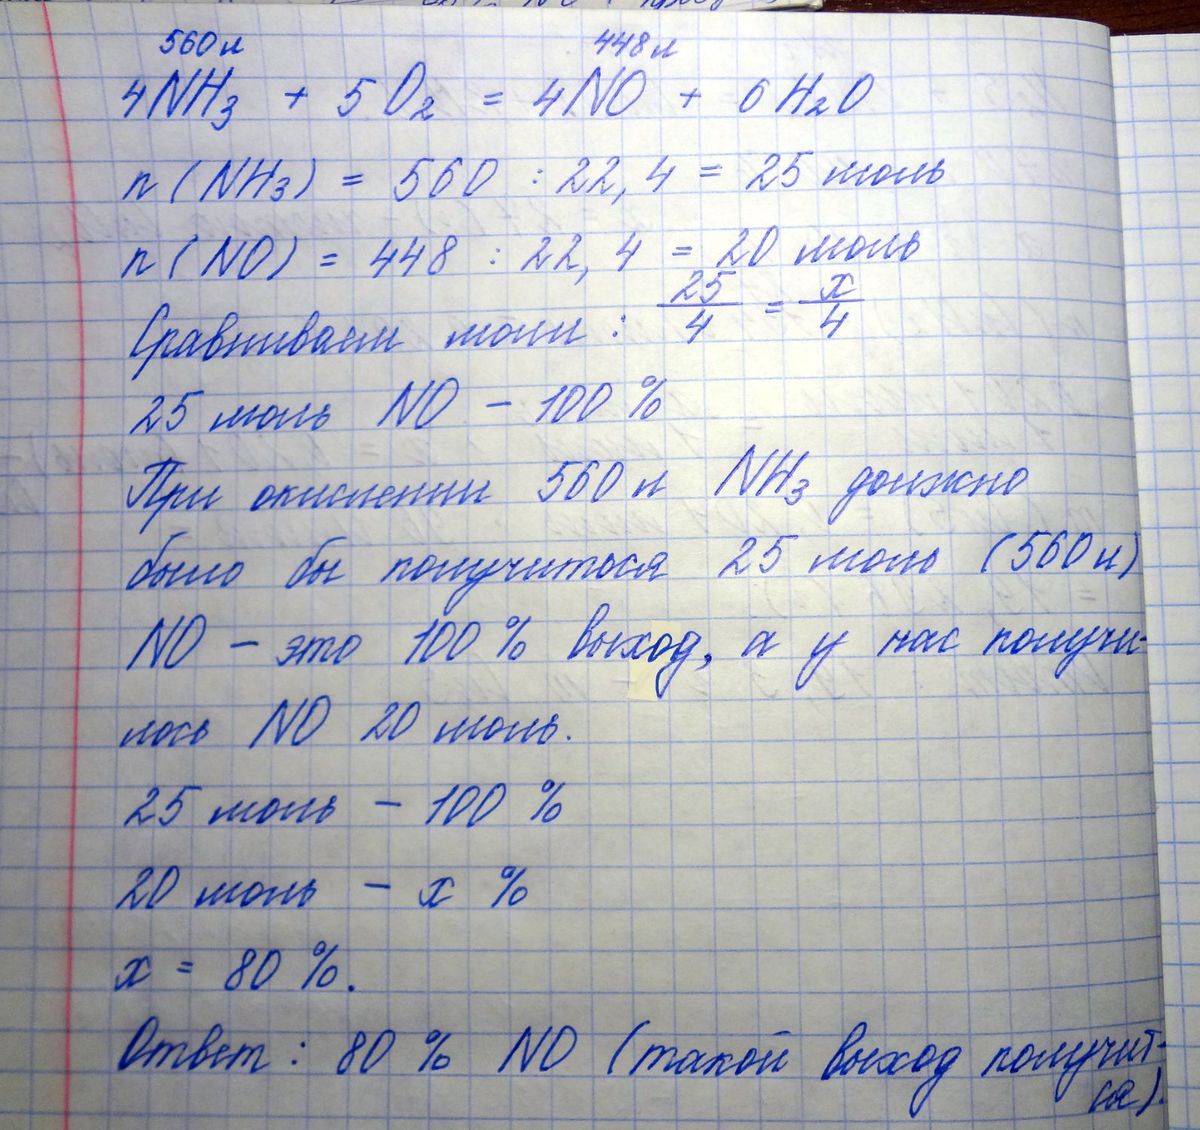 560 л 448 л
4NH₃ + 5O₂ = 4NO + 6H₂O
n (NH₃) = 560 : 22,4 = 25 моль
n (NO) = 448 : 22,4 = 20 моль
Сравниваем моли : 25/4 = x/4
25 моль NO – 100 %
При окислении 560 л NH₃ должно
было бы получиться 25 моль (560 л)
NO – это 100 % выход, а у нас получи-
лось NO 20 моль.
25 моль – 100 %
20 моль – x %
x = 80 %.
Ответ : 80 % NO (такой выход получит-
ся).